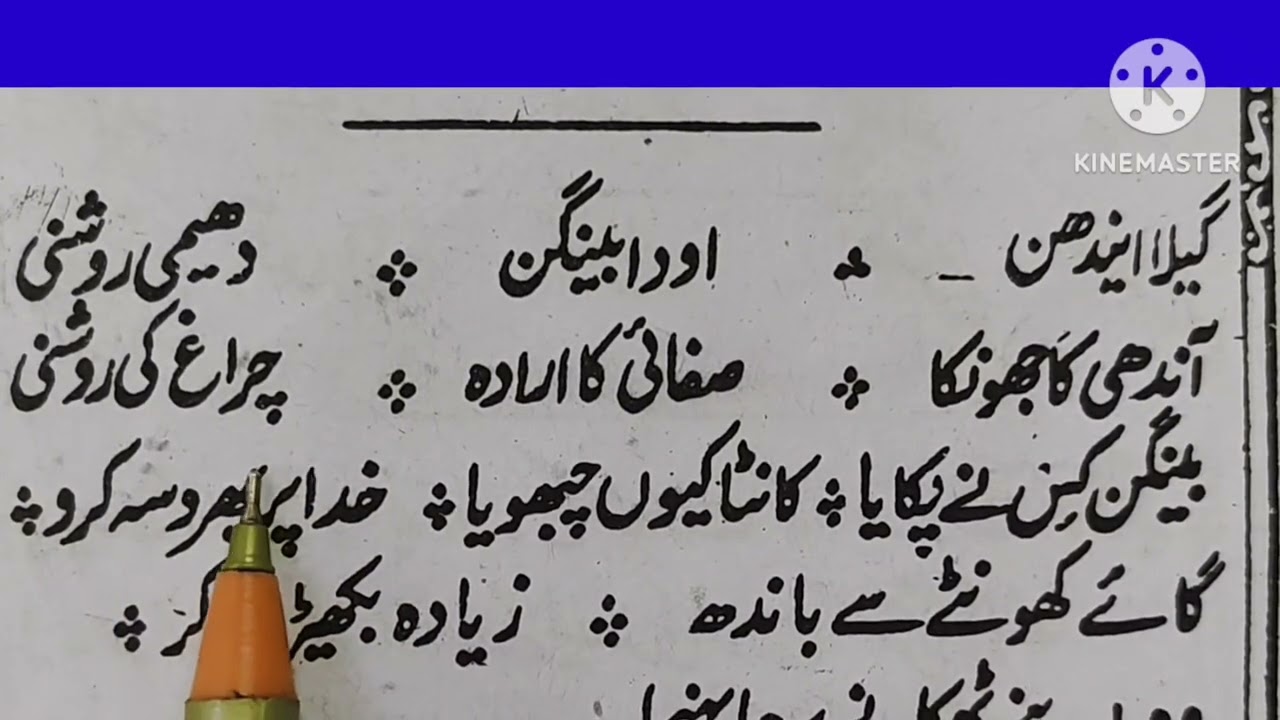 KINEMASTER
گیلا ایندھن - اودا بینگن دھیمی روشنی
آندھی کا جھونکا صفائی کا ارادہ چراغ کی روشنی
بینگن کس نے پکایا کانٹا کیوں چبھویا خدا پر بھروسہ کرو
گائے کھونٹے سے باندھ زیادہ کر